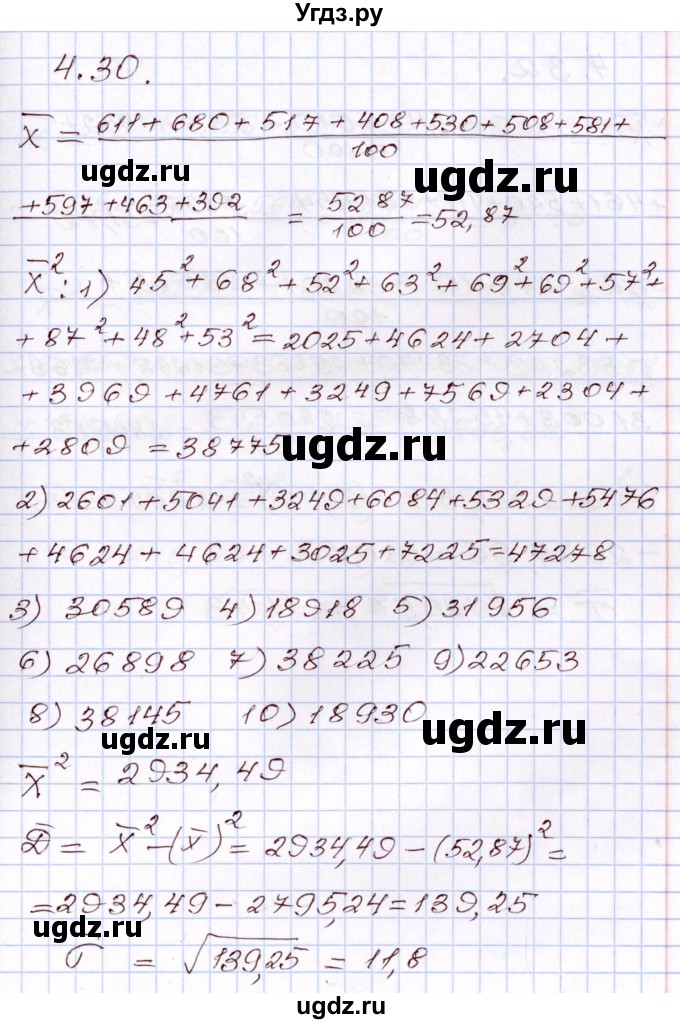 Угдз.ру
4.30.
X̄ = 611 + 680 + 517 + 408 + 530 + 508 + 581 +
100
+ 597 + 463 + 392 = 5287 = 52,87
100
X̄²: 1) 45² + 68² + 52² + 63² + 69² + 69² + 57² +
+ 87² + 48² + 53² = 2025 + 4624 + 2704 +
+ 3969 + 4761 + 3249 + 7569 + 2304 +
+ 2809 = 38775
ugdz.ru
ugdz.ru
2) 2601 + 5041 + 3249 + 6084 + 5329 + 5476
+ 4624 + 4624 + 3025 + 7225 = 47278
3) 30589 4) 18918 5) 31956
6) 26898 7) 38225 9) 22653
8) 38145 10) 18930
ugdz.ru
ugdz.ru
X̄² = 2934,49
D̄ = X̄² - (X̄)² = 2934,49 - (52,87)² =
= 2934,49 - 2795,24 = 139,25
σ = √139,25 = 11,8
ugdz.ru
ugdz.ru
ugdz.ru